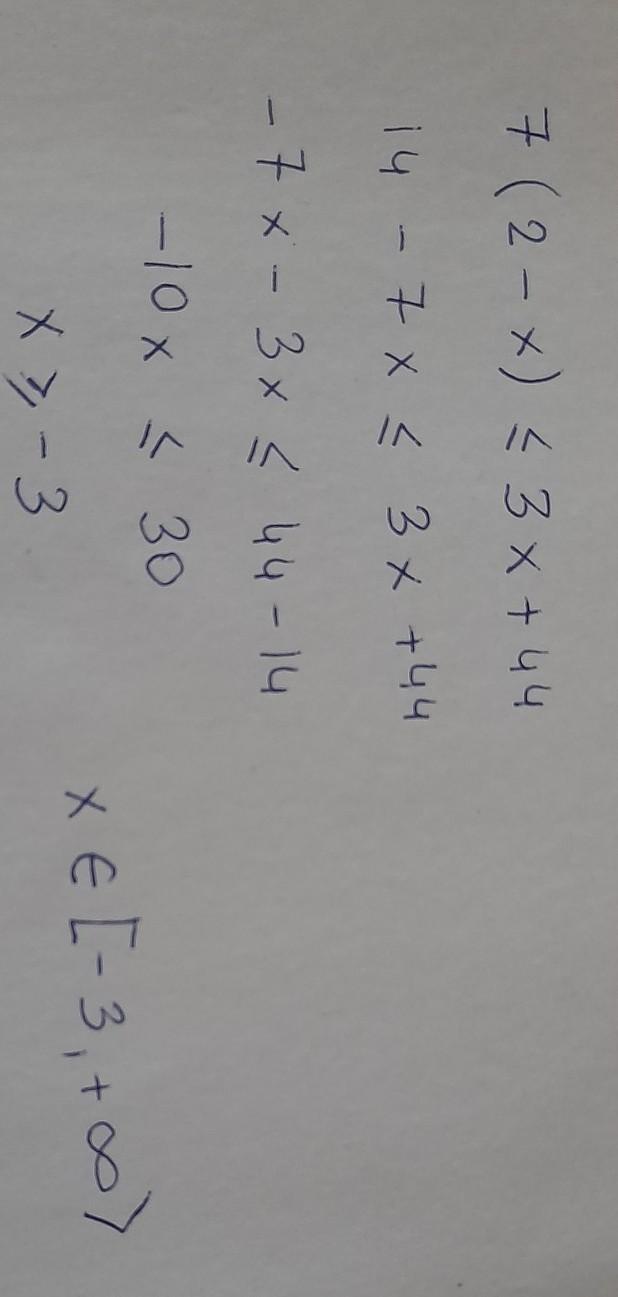 7(2-x) ≤ 3x+44
14-7x ≤ 3x+44
-7x-3x ≤ 44-14
-10x ≤ 30
x ⩾ -3
x ∈ [-3,+∞⟩